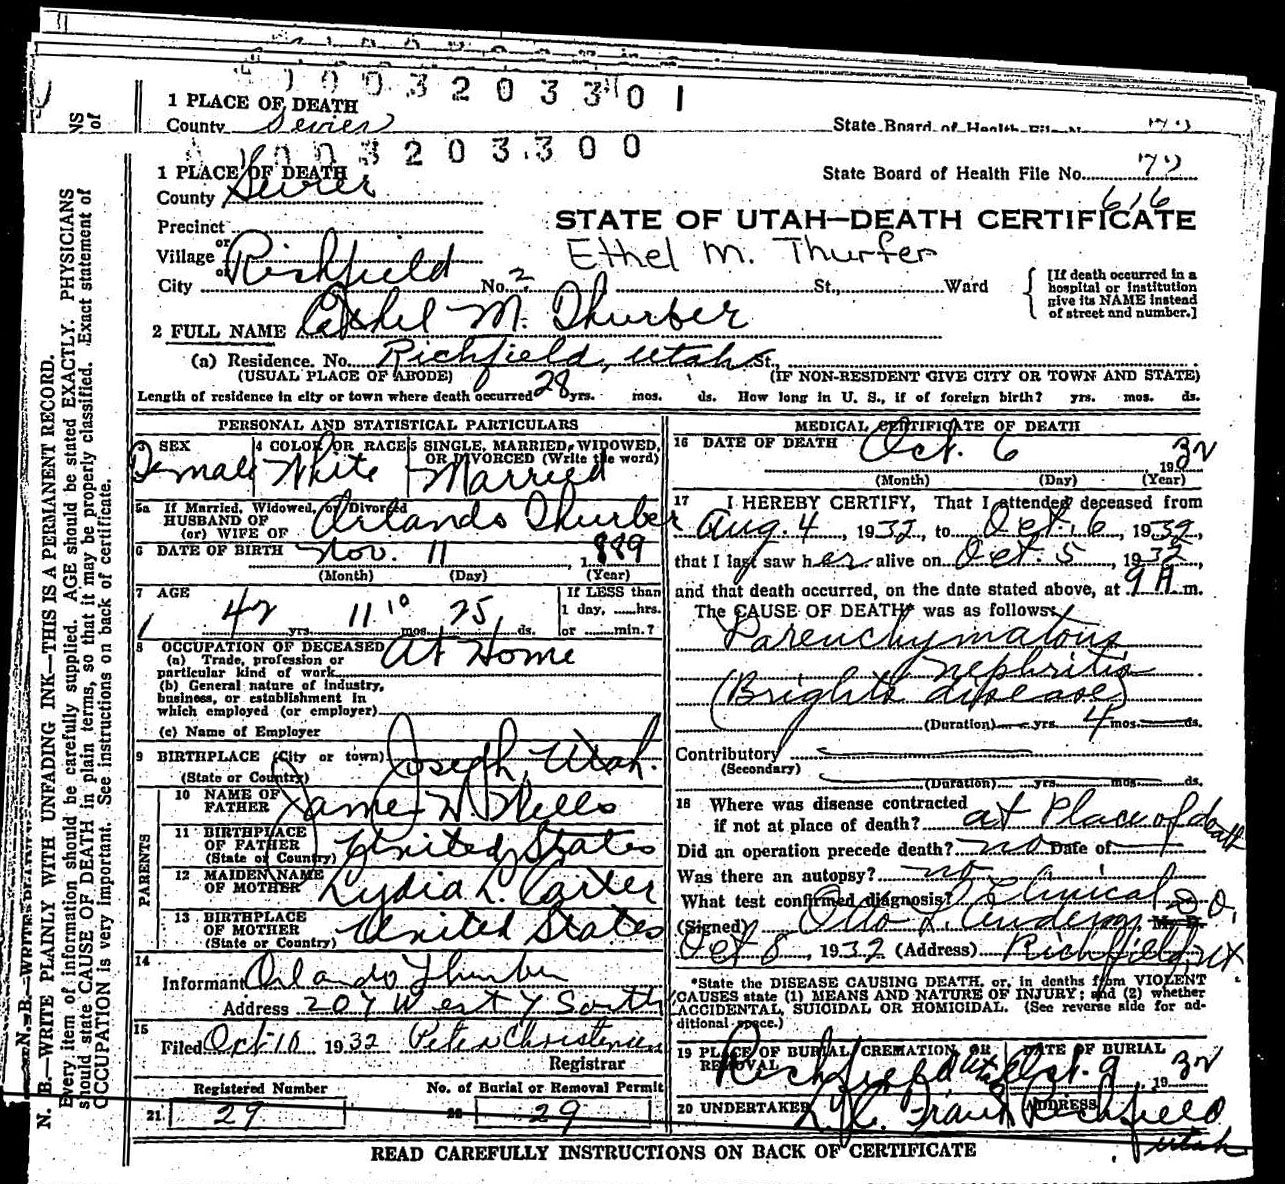 1 0 0 3 2 0 3 3 0 1
1 PLACE OF DEATH
County Sevier
State Board of Health File N
0 0 3 2 0 3 3 0 0
1 PLACE OF DEATH
County Sevier
State Board of Health File No. 79
616
Precinct
STATE OF UTAH—DEATH CERTIFICATE
or
Village
Ethel M. Thurfer
or
City Richfield No. 2 St., Ward
[If death occurred in a
hospital or institution
give its NAME instead
of street and number.]
2 FULL NAME Ethel M. Thurber
(a) Residence. No. Richfield, Utah St.,
(USUAL PLACE OF ABODE) (IF NON-RESIDENT GIVE CITY OR TOWN AND STATE)
Length of residence in city or town where death occurred 28 yrs. mos. ds. How long in U. S., if of foreign birth? yrs. mos. ds.
PERSONAL AND STATISTICAL PARTICULARS
SEX Female
4 COLOR OR RACE White
5 SINGLE, MARRIED, WIDOWED,
OR DIVORCED (Write the word)
Married
5a If Married, Widowed, or Divorced
HUSBAND OF
(or) WIFE OF Orlando Thurber
6 DATE OF BIRTH Nov. 11, 1889
(Month) (Day) (Year)
7 AGE
42 yrs. 11 10 mos. 25 ds.
If LESS than
1 day, hrs.
or min.?
8 OCCUPATION OF DECEASED
(a) Trade, profession or
particular kind of work At Home
(b) General nature of industry,
business, or establishment in
which employed (or employer)
(c) Name of Employer
9 BIRTHPLACE (City or town) Joseph, Utah.
(State or Country)
PARENTS
10 NAME OF
FATHER James W. Wells
11 BIRTHPLACE
OF FATHER
(State or Country) United States
12 MAIDEN NAME
OF MOTHER Lydia L. Carter
13 BIRTHPLACE
OF MOTHER
(State or Country) United States
14
Informant Orlando Thurber
Address 207 West 7 South
15
Filed Oct 10 1932 Peter Christensen
Registrar
Registered Number No. of Burial or Removal Permit
21 29 29
MEDICAL CERTIFICATE OF DEATH
16 DATE OF DEATH Oct. 6 1932
(Month) (Day) (Year)
17 I HEREBY CERTIFY, That I attended deceased from
Aug. 4, 1932, to Oct. 6, 1932,
that I last saw her alive on Oct. 5, 1932
and that death occurred, on the date stated above, at 9 A m.
The CAUSE OF DEATH* was as follows:
Parenchymatous
nephritis
(Brights disease)
(Duration) yrs. 4 mos. ds.
Contributory
(Secondary)
(Duration) yrs. mos. ds.
18 Where was disease contracted
if not at place of death? at Place of death
Did an operation precede death? no Date of
Was there an autopsy? no
What test confirmed diagnosis? Clinical
(Signed) Otto L. Anderson, M. D. D.O.
Oct 8, 1932 (Address) Richfield, Ut
*State the DISEASE CAUSING DEATH, or, in deaths from VIOLENT
CAUSES state (1) MEANS AND NATURE OF INJURY; and (2) whether
ACCIDENTAL, SUICIDAL OR HOMICIDAL. (See reverse side for ad-
ditional space.)
19 PLACE OF BURIAL, CREMATION, OR
REMOVAL
Richfield Utah
DATE OF BURIAL
Oct. 9 1932
20 UNDERTAKER
ADDRESS
Richfield
Utah
READ CAREFULLY INSTRUCTIONS ON BACK OF CERTIFICATE
N. B.—WRITE PLAINLY WITH UNFADING INK—THIS IS A PERMANENT RECORD.
Every item of information should be carefully supplied. AGE should be stated EXACTLY. PHYSICIANS
should state CAUSE OF DEATH in plain terms, so that it may be properly classified. Exact statement of
OCCUPATION is very important. See instructions on back of certificate.